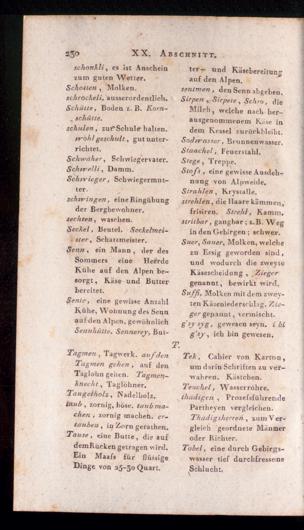 230 XX. ABSCHNITT.
schonkli, es ist Anschein
zum guten Wetter.
Schotten, Molken.
schröcheli, ausserordentlich.
Schütte, Boden z. B. Korn-
schütte.
schulen, zur Schule halten.
wohl geschult, gut unter-
richtet.
Schwäher, Schwiegervater.
Schwelli, Damm.
Schwieger, Schwiegermut-
ter.
schwingen, eine Ringübung
der Bergbewohner.
sechten, waschen.
Seckel, Beutel. Seckelmei-
ster, Schatzmeister.
Senn, ein Mann, der des
Sommers eine Heerde
Kühe auf den Alpen be-
sorgt, Käse und Butter
bereitet.
Sente, eine gewisse Anzahl
Kühe, Wohnung des Senn
auf den Alpen, gewöhnlich
Sennhütte. Sennerey, But-
Tagmen, Tagwerk. auf den
Tagmen gehen, auf den
Taglohn gehen. Tagmen-
knecht, Taglöhner.
Tangelholz, Nadelholz.
taub, zornig, böse. taub ma-
chen, zornig machen. er-
tauben, in Zorn gerathen.
Tause, eine Butte, die auf
dem Rücken getragen wird.
Ein Maafs für flüssige
Dinge von 25-30 Quart.
ter- und Käsebereitung
auf den Alpen.
sentmen, den Senn abgeben.
Sirpen, Sirpete, Schro, die
Milch, welche nach her-
ausgenommenem Käse in
dem Kessel zurückbleibt.
Sodwasser, Brunnenwasser.
Staachel, Feuerstahl.
Stege, Treppe.
Stofs, eine gewisse Ausdeh-
nung von Alpweide.
Strahlen, Krystalle.
strehlen, die Haare kämmen,
frisiren. Strehl, Kamm.
stritbar, gangbar: z. B. Weg
in den Gebirgen; schwer.
Suer, Sauer, Molken, welche
zu Essig geworden sind,
und wodurch die zweyte
Käsescheidung, Zieger
genannt, bewirkt wird.
Suffi, Molken mit dem zwey-
ten Käseniederschlag, Zie-
ger genannt, vermischt.
g'sy syg, gewesen seyn. i bi
g'sy, ich bin gewesen.
T.
Tek, Cahier von Karton,
um darin Schriften zu ver-
wahren. Kästchen.
Teuchel, Wasserröhre.
thädigen, Prozefsführende
Partheyen vergleichen.
Thädigsherren, zum Ver-
gleich geordnete Männer
oder Richter.
Tobel, eine durch Gebirgs-
wasser tief durchfressene
Schlucht.